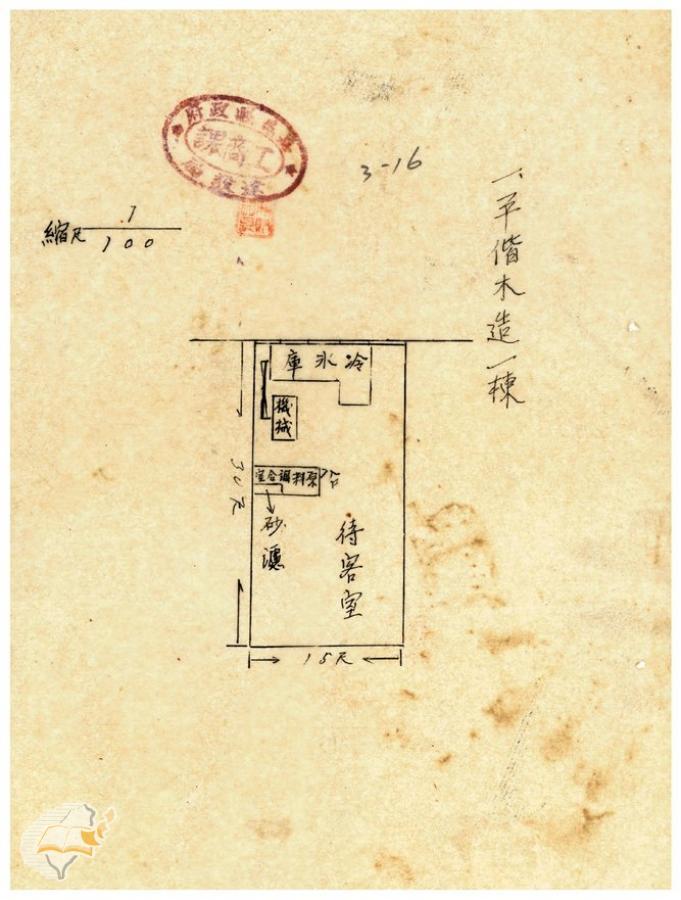 縣政府
工商課
建設局
3-16
一、平偕木造一棟
縮尺 1/100
冷氷庫
機械
原料調合室
入口
砂濾
待客室
30尺
15尺